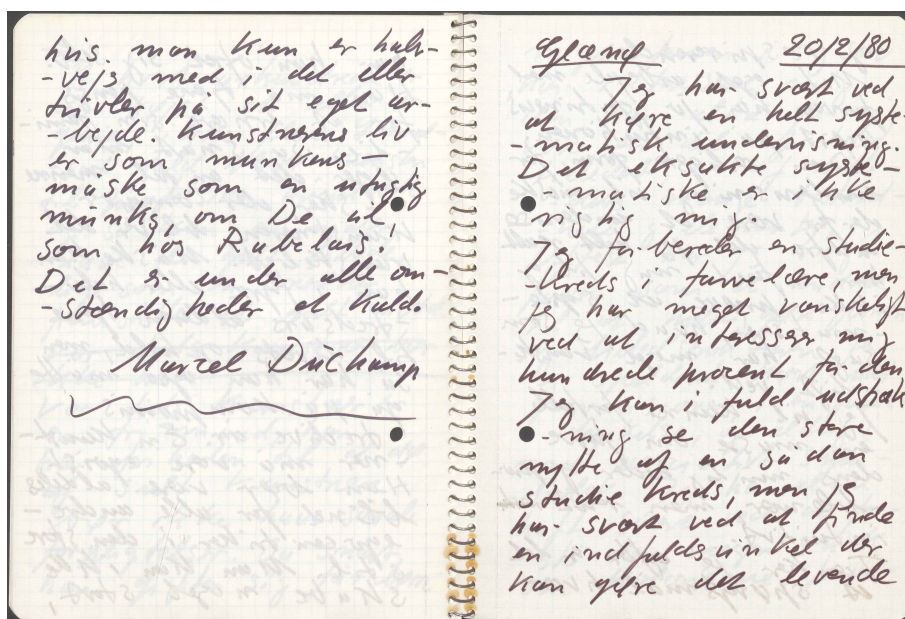 hvis man kun er halv-
-vejs med i det eller
tvivler på sit eget ar-
-bejde. Kunstnerens liv
er som munkens —
måske som en utugtig
munks, om De vil,
som hos Rabelais!
Det er under alle om-
-stændigheder et kald.
Marcel Duchamp
Glænø 20/2/80
Jeg har svært ved
at køre en helt syste-
-matisk undervisning.
Det eksakte syste-
-matiske er ikke
rigtig mig.
Jeg forbereder en studie-
-kreds i farvelære, men
jeg har meget vanskeligt
ved at interessere mig
hundrede procent for den
Jeg kan i fuld udstræk
-ning se den store
nytte af en sådan
studiekreds, men jeg
har svært ved at finde
en indfaldsvinkel der
kan gøre det levende